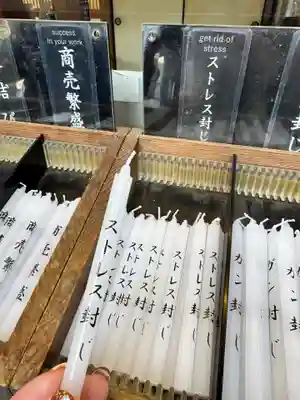 success
in your work
商売繁盛
get rid of
stress
ストレス封じ
ストレス封じ
ストレス封じ
ストレス封じ
ストレス封じ
ストレス封じ
ストレス封じ
商売繁盛
商売繁盛
商売繁盛
ガン封じ
ガン封じ
ガン封じ